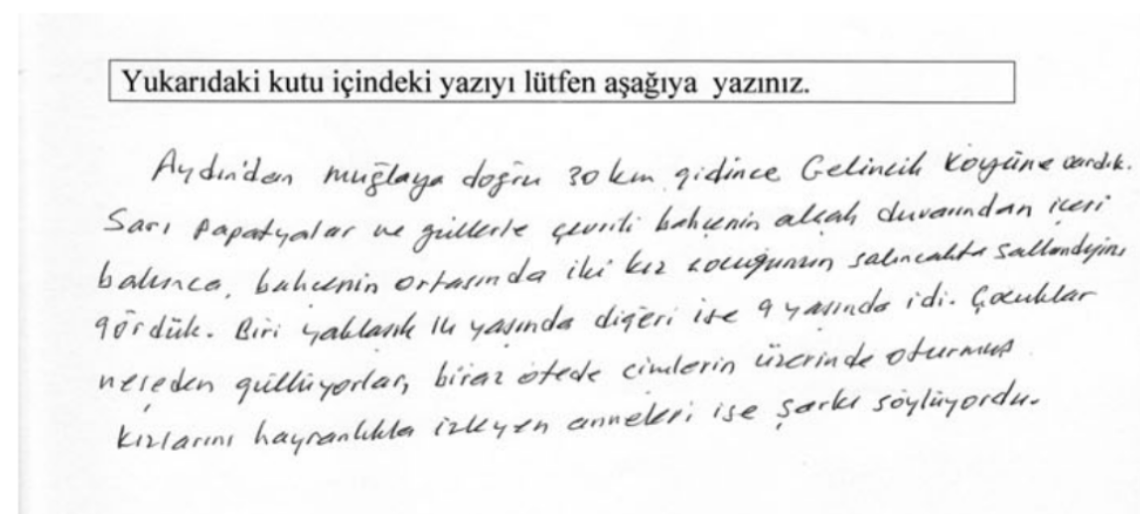 Yukarıdaki kutu içindeki yazıyı lütfen aşağıya yazınız.
Aydın'dan muğlaya doğru 30 km gidince Gelincik Köyüne vardık.
Sarı papatyalar ve güllerle çevrili bahçenin alçak duvarından içeri
bakınca, bahçenin ortasında iki kız çocuğunun salıncakta sallandığını
gördük. Biri yaklaşık 14 yaşında diğeri ise 9 yaşında idi. Çocuklar
neşeden gülüyorlar, biraz ötede çimlerin üzerinde oturmuş
kızlarını hayranlıkla izleyen anneleri ise şarkı söylüyordu.